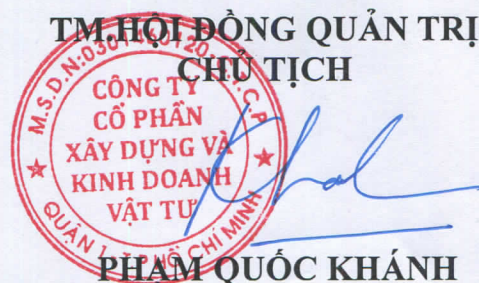 TM.HỘI ĐỒNG QUẢN TRỊ
CHỦ TỊCH
CÔNG TY
CỔ PHẦN
XÂY DỰNG VÀ
KINH DOANH
VẬT TƯ
QUẬN 1 - TP HỒ CHÍ MINH
PHẠM QUỐC KHÁNH